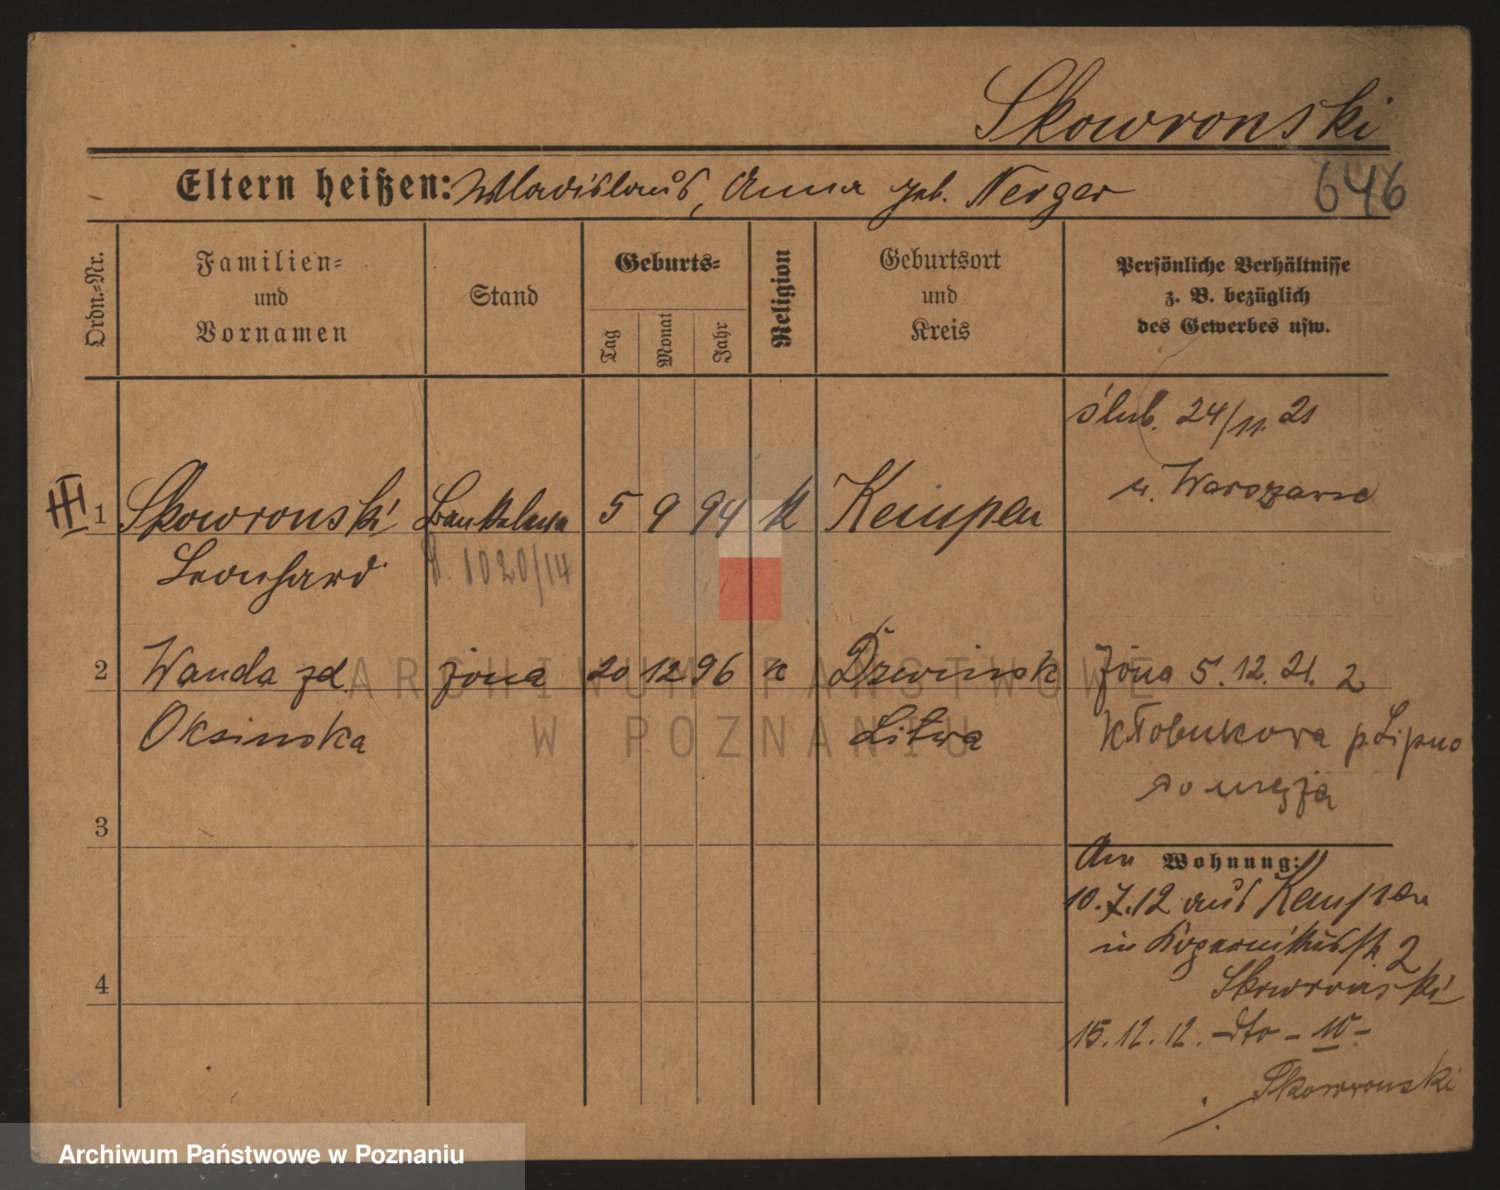 Skowronski
646
Eltern heißen: Wladislaus, Anna geb. Nerger
Ordn.-Nr.
Familien- und Vornamen
Stand
Geburts-
Tag
Monat
Jahr
Religion
Geburtsort und Kreis
Persönliche Verhältnisse z. B. bezüglich des Gewerbes usw.
ślub. 24/11. 21
w. Warszawie
III
1 Skowronski 5 9 94 k Kempen
Leonhard
1020/14
2 Wanda zd. żona 20 12 96 k Dzwinsk żona 5. 12. 21. z
Oksinska Litwa Kłobukowa p Lipno
3
Am Wohnung:
10.7.12 aus Kempen
in Kopernikusstr. 2
4
Skowronski
15.12.12. -dto- 10-
Skowronski
ARCHIWUM PAŃSTWOWE
W POZNANIU
Archiwum Państwowe w Poznaniu